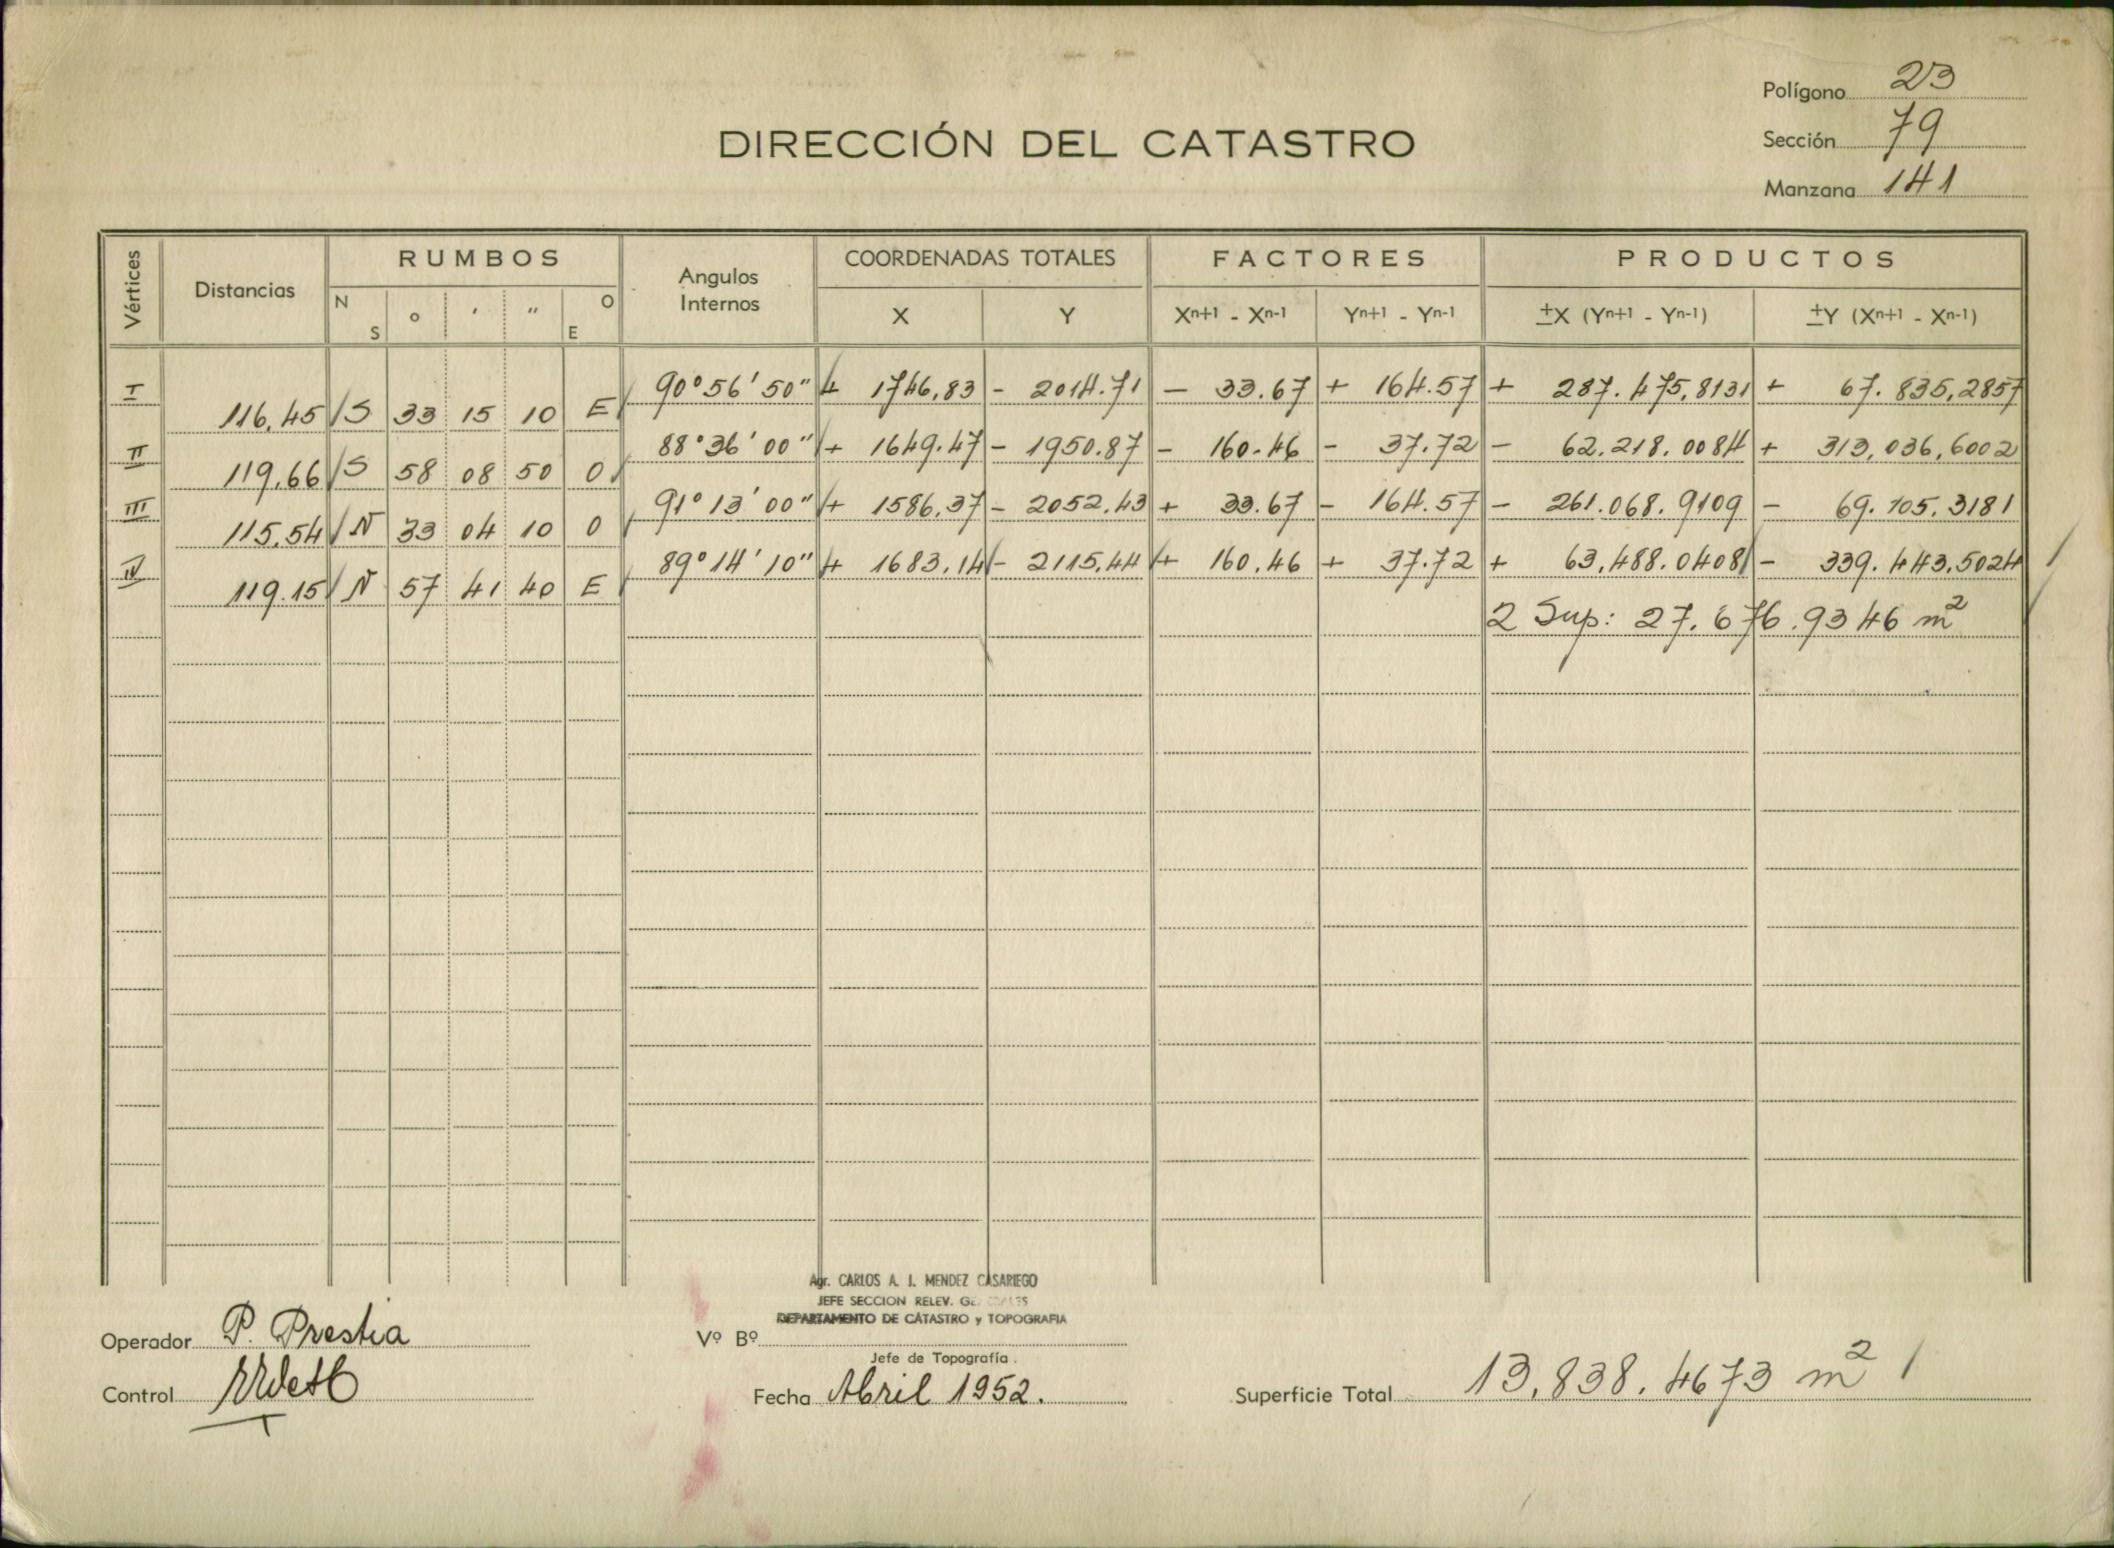 Polígono 23
DIRECCIÓN DEL CATASTRO
Sección 79
Manzana 141
Vértices Distancias RUMBOS Angulos Internos COORDENADAS TOTALES FACTORES PRODUCTOS
N S o ' " O E X Y Xn+1 - Xn-1 Yn+1 - Yn-1 ±X (Yn+1 - Yn-1) ±Y (Xn+1 - Xn-1)
I 90° 56' 50" + 1746,83 - 2014.71 - 33.67 + 164.57 + 287.475,8131 + 67.835,2857
116,45 S 33 15 10 E
II 88° 36' 00" + 1649.47 - 1950.87 - 160.46 - 37.72 - 62.218.0084 + 313,036,6002
119,66 S 58 08 50 O
III 91° 13' 00" + 1586,37 - 2052.43 + 33.67 - 164.57 - 261.068.9109 - 69.105.3181
115,54 N 33 04 10 O
IV 89° 14' 10" + 1683,14 - 2115,44 + 160.46 + 37.72 + 63,488.0408 - 339.443,5024
119.15 N 57 41 40 E
2 Sup: 27.676.9346 m²
Agr. CARLOS A. I. MENDEZ CASARIEGO
JEFE SECCION RELEV.
DEPARTAMENTO DE CATASTRO y TOPOGRAFIA
Operador P. Prestia
Vº Bº
Jefe de Topografía
Control
Fecha Abril 1952.
Superficie Total 13,838.4673 m²